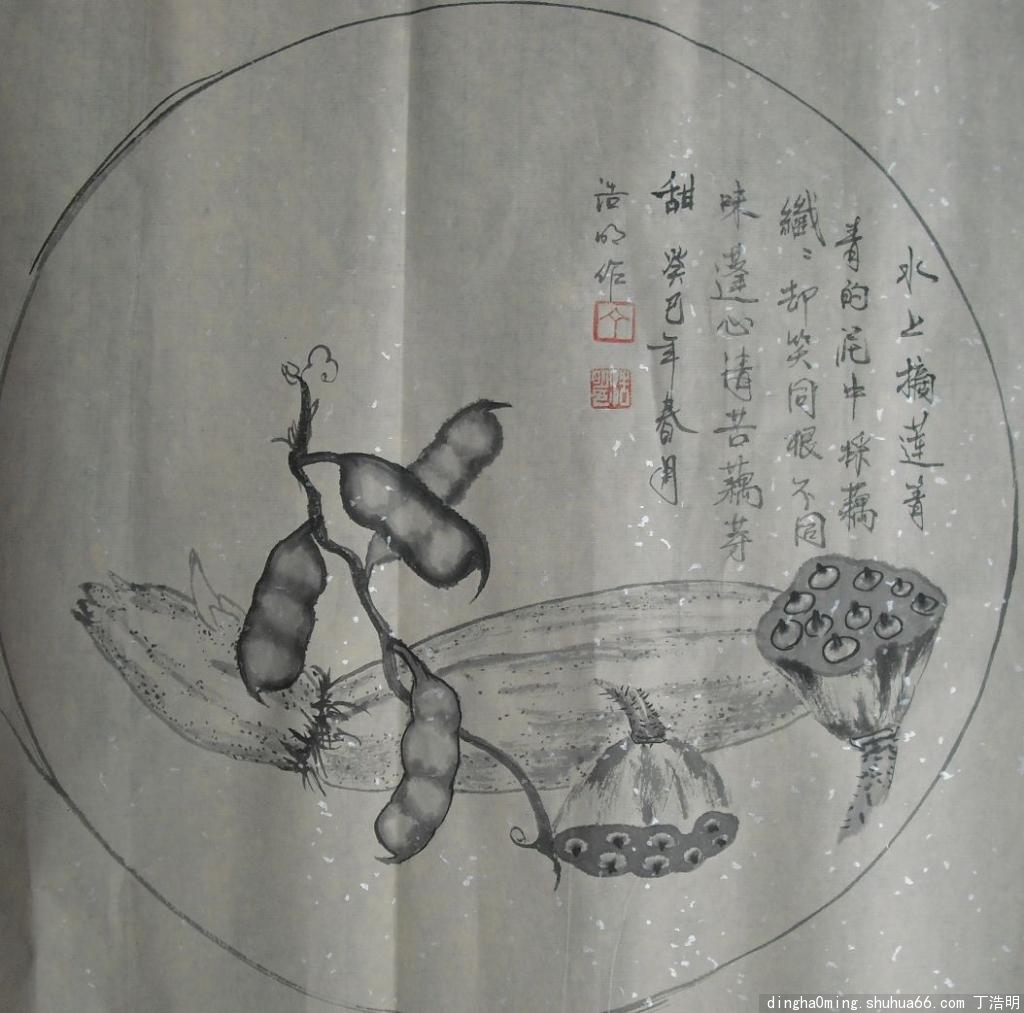 水上摘蓮菁
青的泥中採藕
纖〻却笑同根不同
味蓮心清苦藕芽
甜 癸巳年春月
浩明作
dingha0ming.shuhua66.com 丁浩明